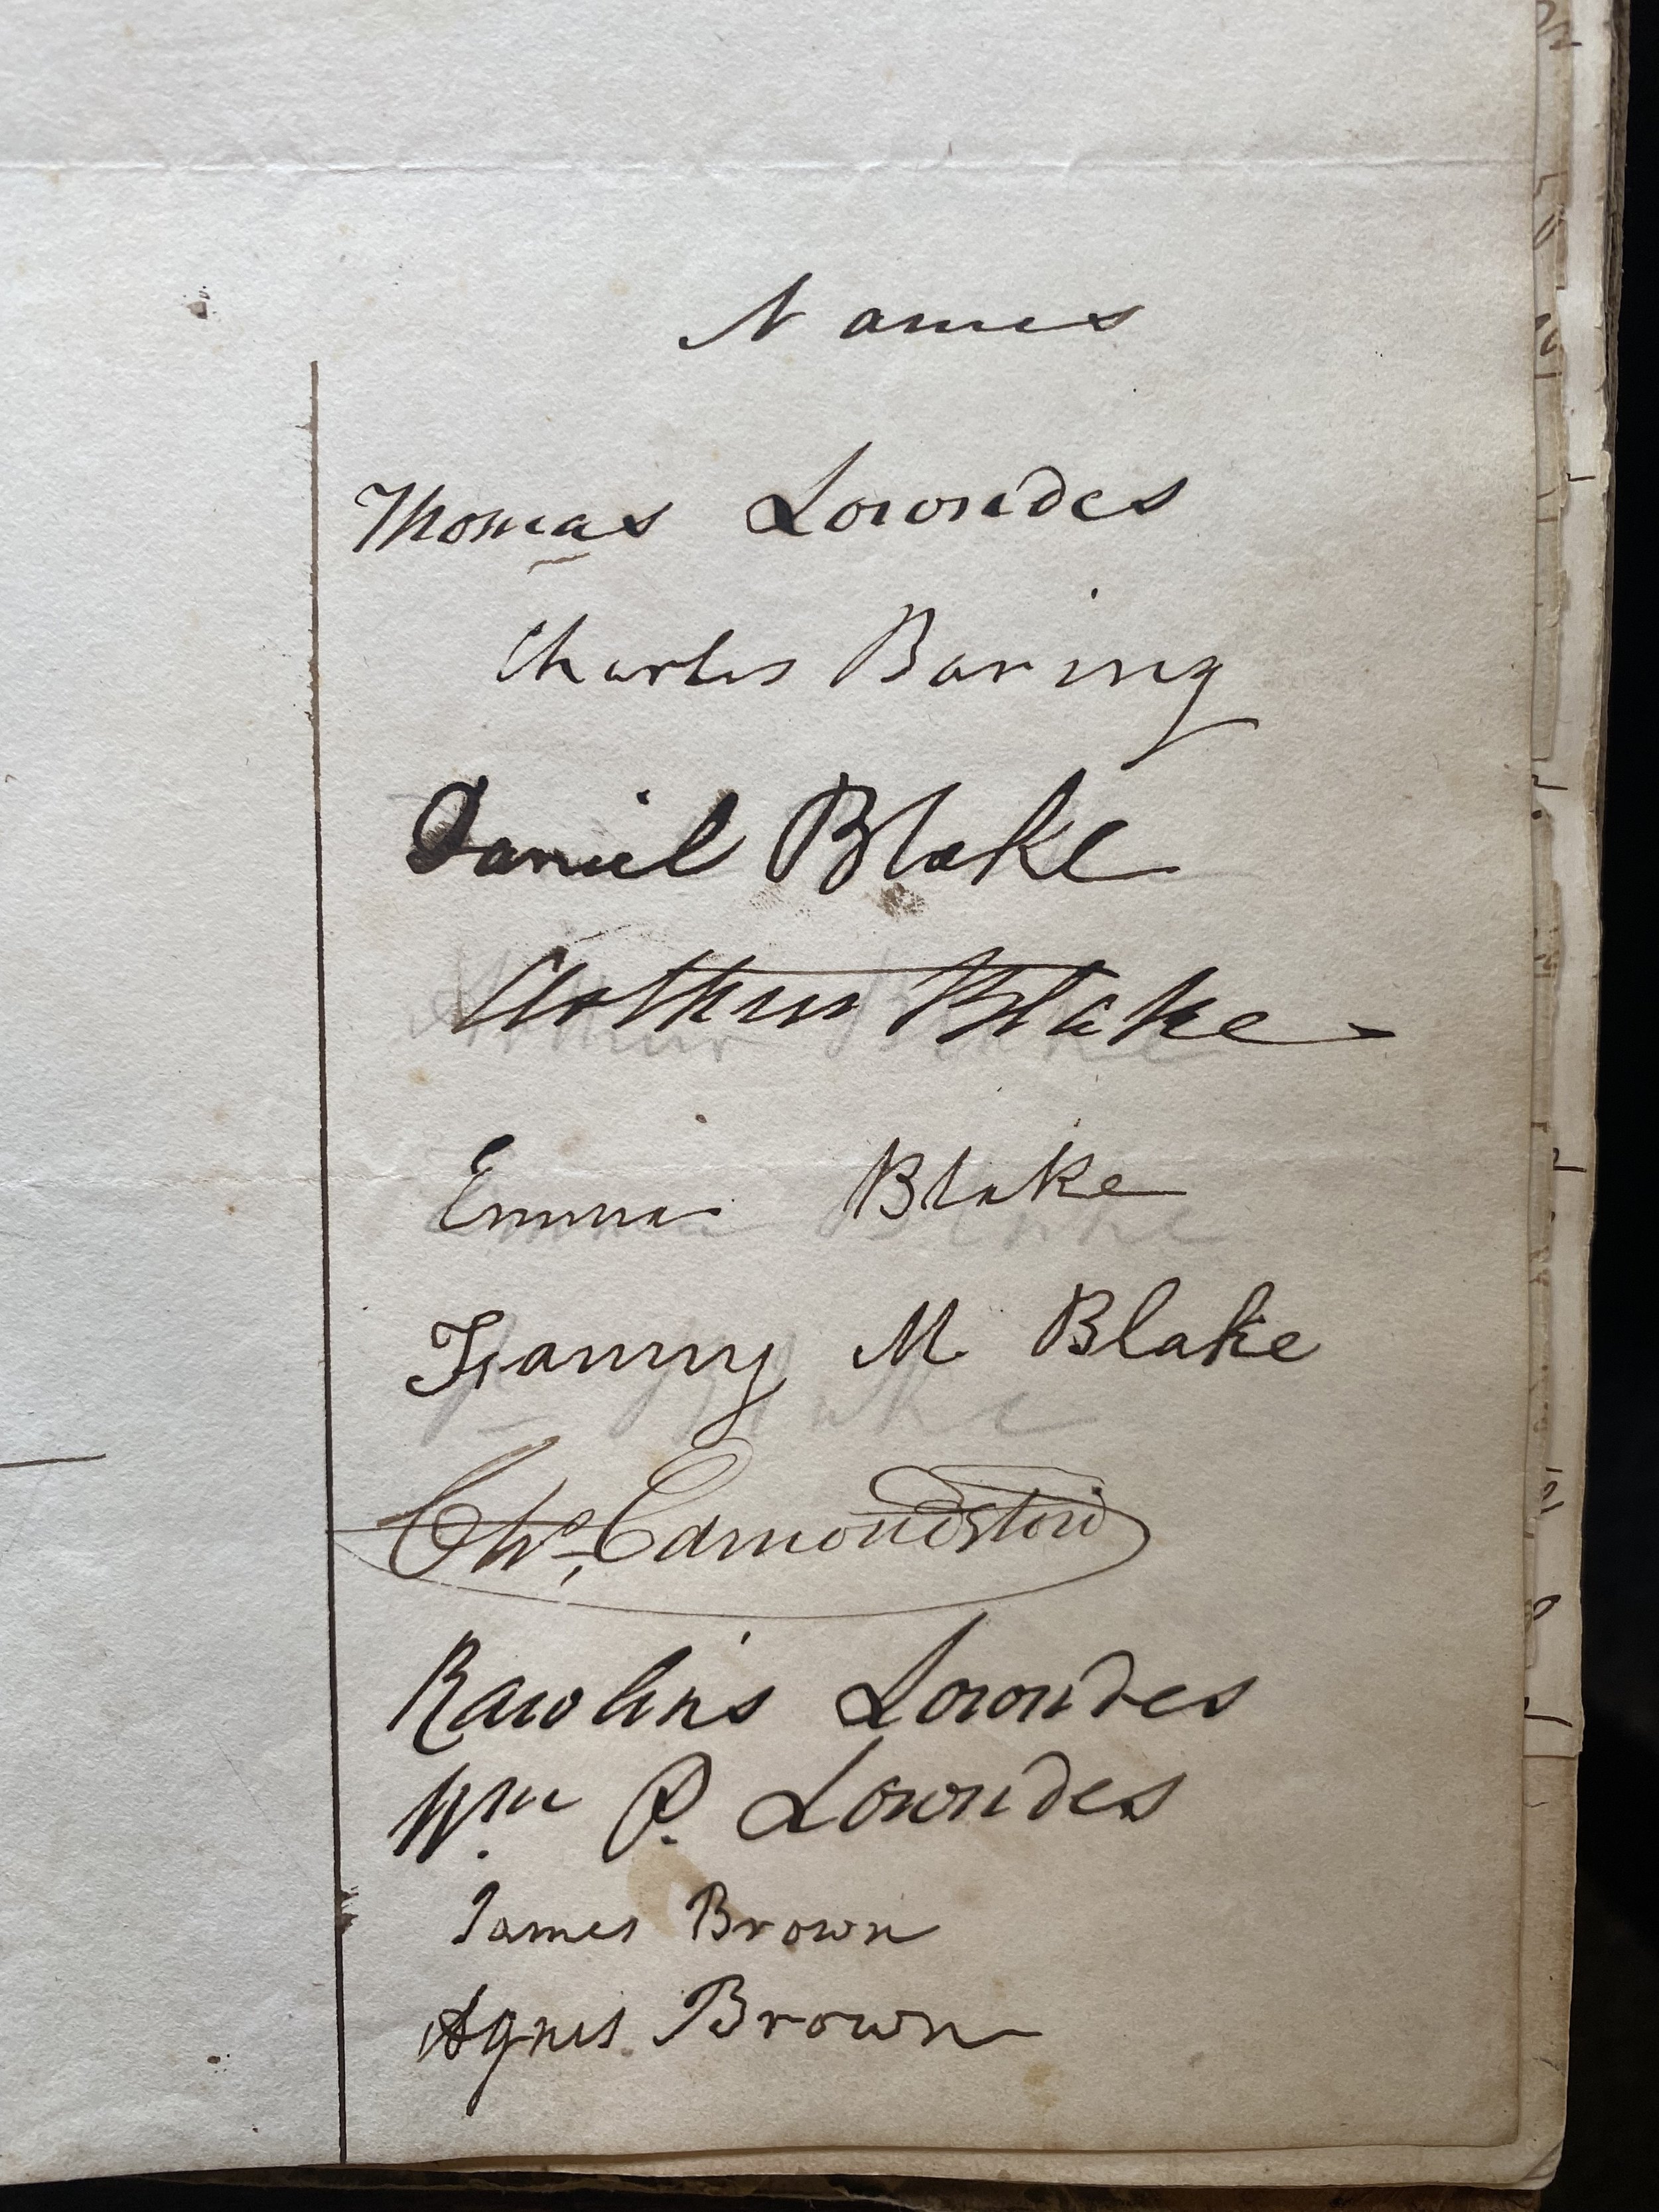 Names
Thomas Lowndes
Charles Baring
Daniel Blake
Arthur Blake
Arthur Blake
Emma Blake
Emma Blake
Fanny M. Blake
F Blake
Chs. Edmondston
Rawlins Lowndes
Wm P. Lowndes
James Brown
Agnes Brown